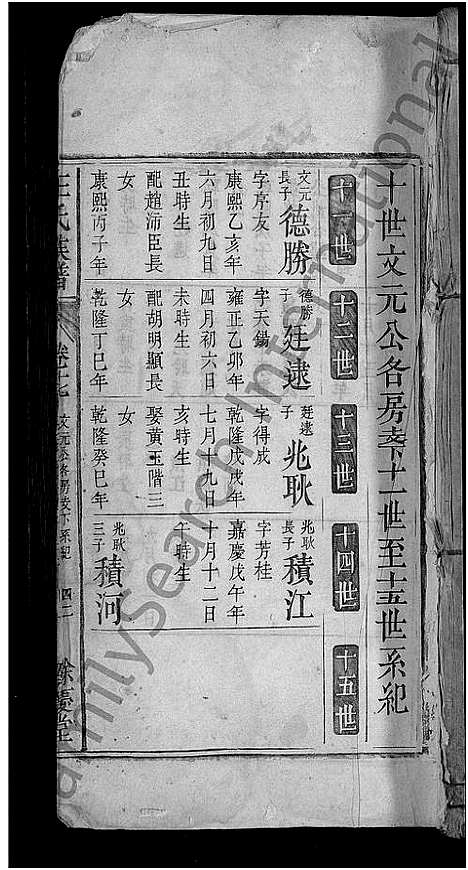 十世文元公各房支下十一世至十五世系紀
十一世
十二世
十三世
十四世
十五世
文元長子
德勝
字序友
康熙乙亥年
六月初九日
丑時生
配趙沛臣長
女
康熙丙子年
德勝子
廷逮
字天錫
雍正乙卯年
四月初六日
未時生
配胡明顯長
女
乾隆丁巳年
廷逮子
兆耿
字得成
乾隆戊戌年
七月十九日
亥時生
娶黄玉階三
女
乾隆癸巳年
兆耿長子
積江
字芳桂
嘉慶戊午年
十月十二日
午時生
兆耿三子
積河
王氏族譜
卷七
文元公各房支下系紀
四二
餘慶堂
FamilySearch International